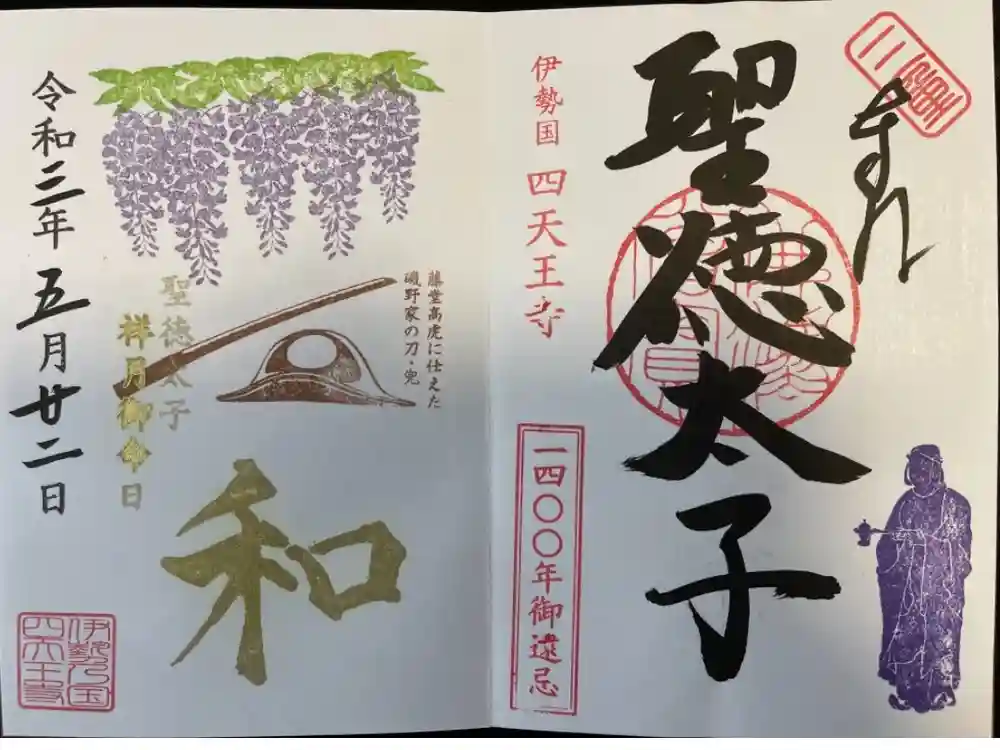 奉拝
聖徳太子
伊勢国 四天王寺
一四〇〇年御遠忌
藤堂高虎に仕えた
磯野家の刀・兜
聖徳太子
祥月御命日
和
令和三年五月廿二日
伊勢之国
四天王寺